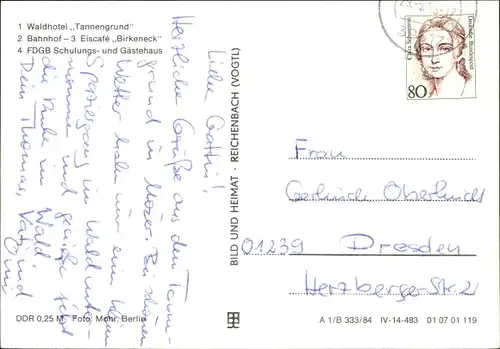 1 Waldhotel „Tannengrund"
2 Bahnhof – 3 Eiscafé „Birkeneck"
4 FDGB Schulungs- und Gästehaus
Liebe
Herzliche Grüße aus dem Tannen-
grund in Bei schönem
Wetter haben wir ein kleinen
Spaziergang im Wald unter-
nommen und
die Ruhe im Wald.
Dein Thomas, Vati und
DDR 0,25 M Foto: Mohr, Berlin
BILD UND HEIMAT · REICHENBACH (VOGTL)
Clara Schumann
Deutsche Bundespost
80
Frau
01239 Dresden
Herzberger-Str. 2
A 1/B 333/84 IV-14-483 01 07 01 119